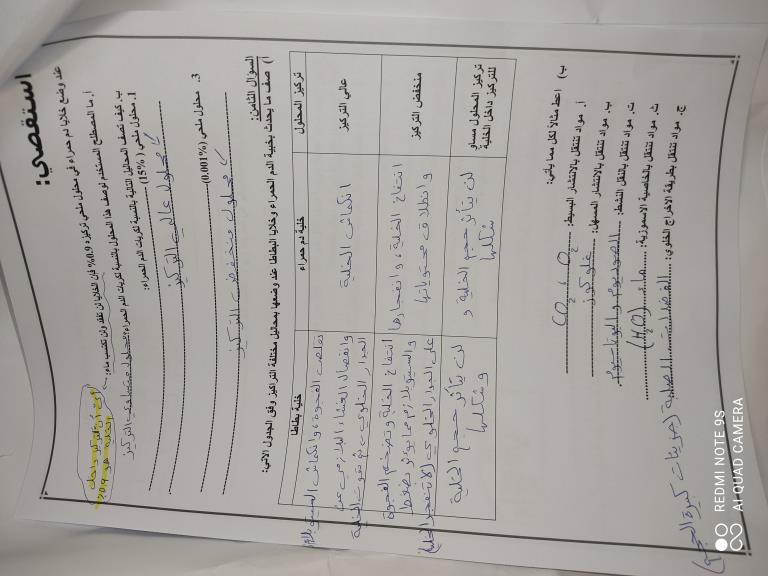 استقصي:
عند وضع خلايا دم حمراء في محلول ملحي تركيزه 0.9% فإن الخلايا لن تفقد ولن تكتسب ماء:
أي أن التركيز داخل الخلية هو 0.9%
أ. ما المصطلح المستخدم لوصف هذا المحلول بالنسبة لكريات الدم الحمراء: محلول متساوي التركيز
ب. كيف تصف المحاليل التالية بالنسبة لكريات الدم الحمراء:
1. محلول ملحي (15%)
محلول عالي التركيز
3. محلول ملحي (0.001%)
محلول منخفض التركيز
السؤال الثامن:
أ) صف ما يحدث بخلية الدم الحمراء وخلايا البطاطا عند وضعها بمحاليل مختلفة التراكيز وفق الجدول الآتي:
تركيز المحلول خلية دم حمراء خلية بطاطا
عالي التركيز
انكماش الخلية
تقلص الفجوة، وانكماش السيتوبلازم
وانفصال الغشاء البلازمي عن
الجدار الخلوي، ثم تموت الخلية
منخفض التركيز
انتفاخ الخلية، وانفجارها
وانطلاق محتوياتها
انتفاخ الخلية وتضخم الفجوة
والسيتوبلازم مما يولد ضغطا
على الجدار الخلوي (لا تنفجر الخلية)
تركيز المحلول مساو
للتركيز داخل الخلية
لن يتأثر حجم الخلية و
شكلها
لن يتأثر حجم الخلية
وشكلها
ب) اعط مثالاً لكل مما يأتي:
أ. مواد تنتقل بالانتشار البسيط: CO2 ، O2
ب. مواد تنتقل بالانتشار المسهل: غلوكوز
ت. مواد تنتقل بالنقل النشط: الصوديوم والبوتاسيوم
ث. مواد تنتقل بالخاصية الاسموزية: ماء (H2O)
ج. مواد تنتقل بطريقة الاخراج الخلوي: الفضلات الصلبة (جزيئات كبيرة الحجم)
REDMI NOTE 9S
AI QUAD CAMERA